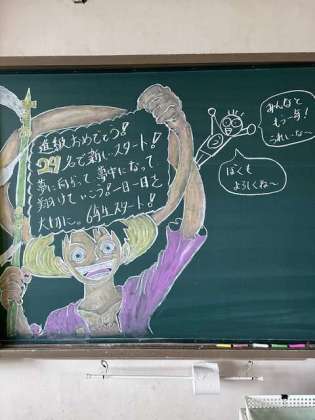 進級おめでとう!
29名で新しいスタート!
夢に向かって 夢中になって
翔けていこう!一日一日を
大切に。6年スタート!
みんなと
もう一年!
うれしいな〜
ぼくも
よろしくね〜